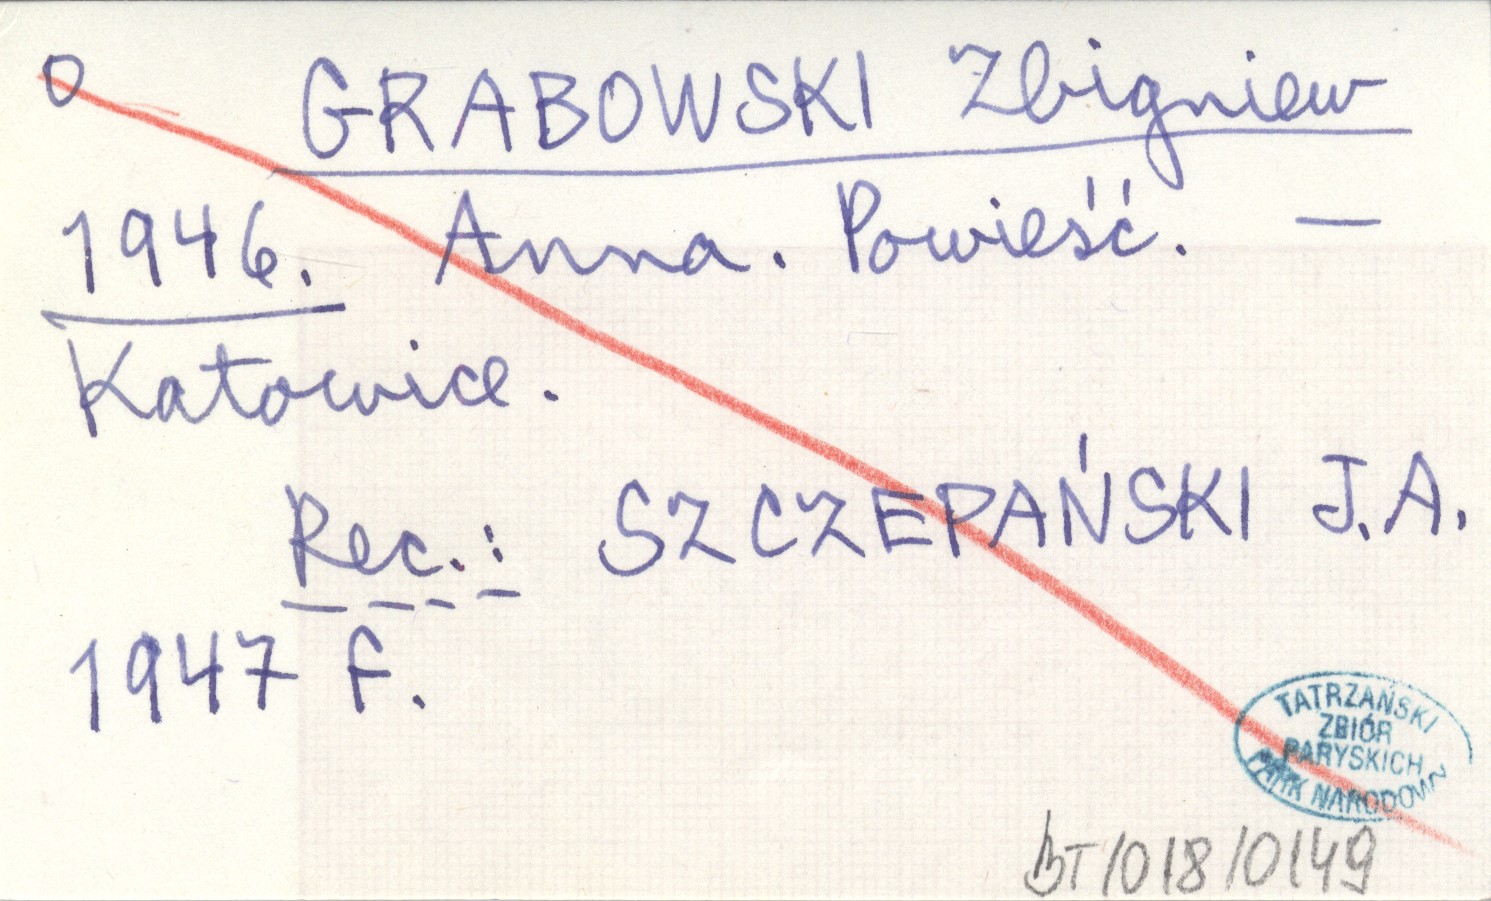 O GRABOWSKI Zbigniew
1946. Anna. Powieść. —
Katowice.
Rec.: SZCZEPAŃSKI J.A.
1947 f.
TATRZAŃSKI
ZBIÓR
PARYSKICH
PARK NARODOWY
BT/018/0149